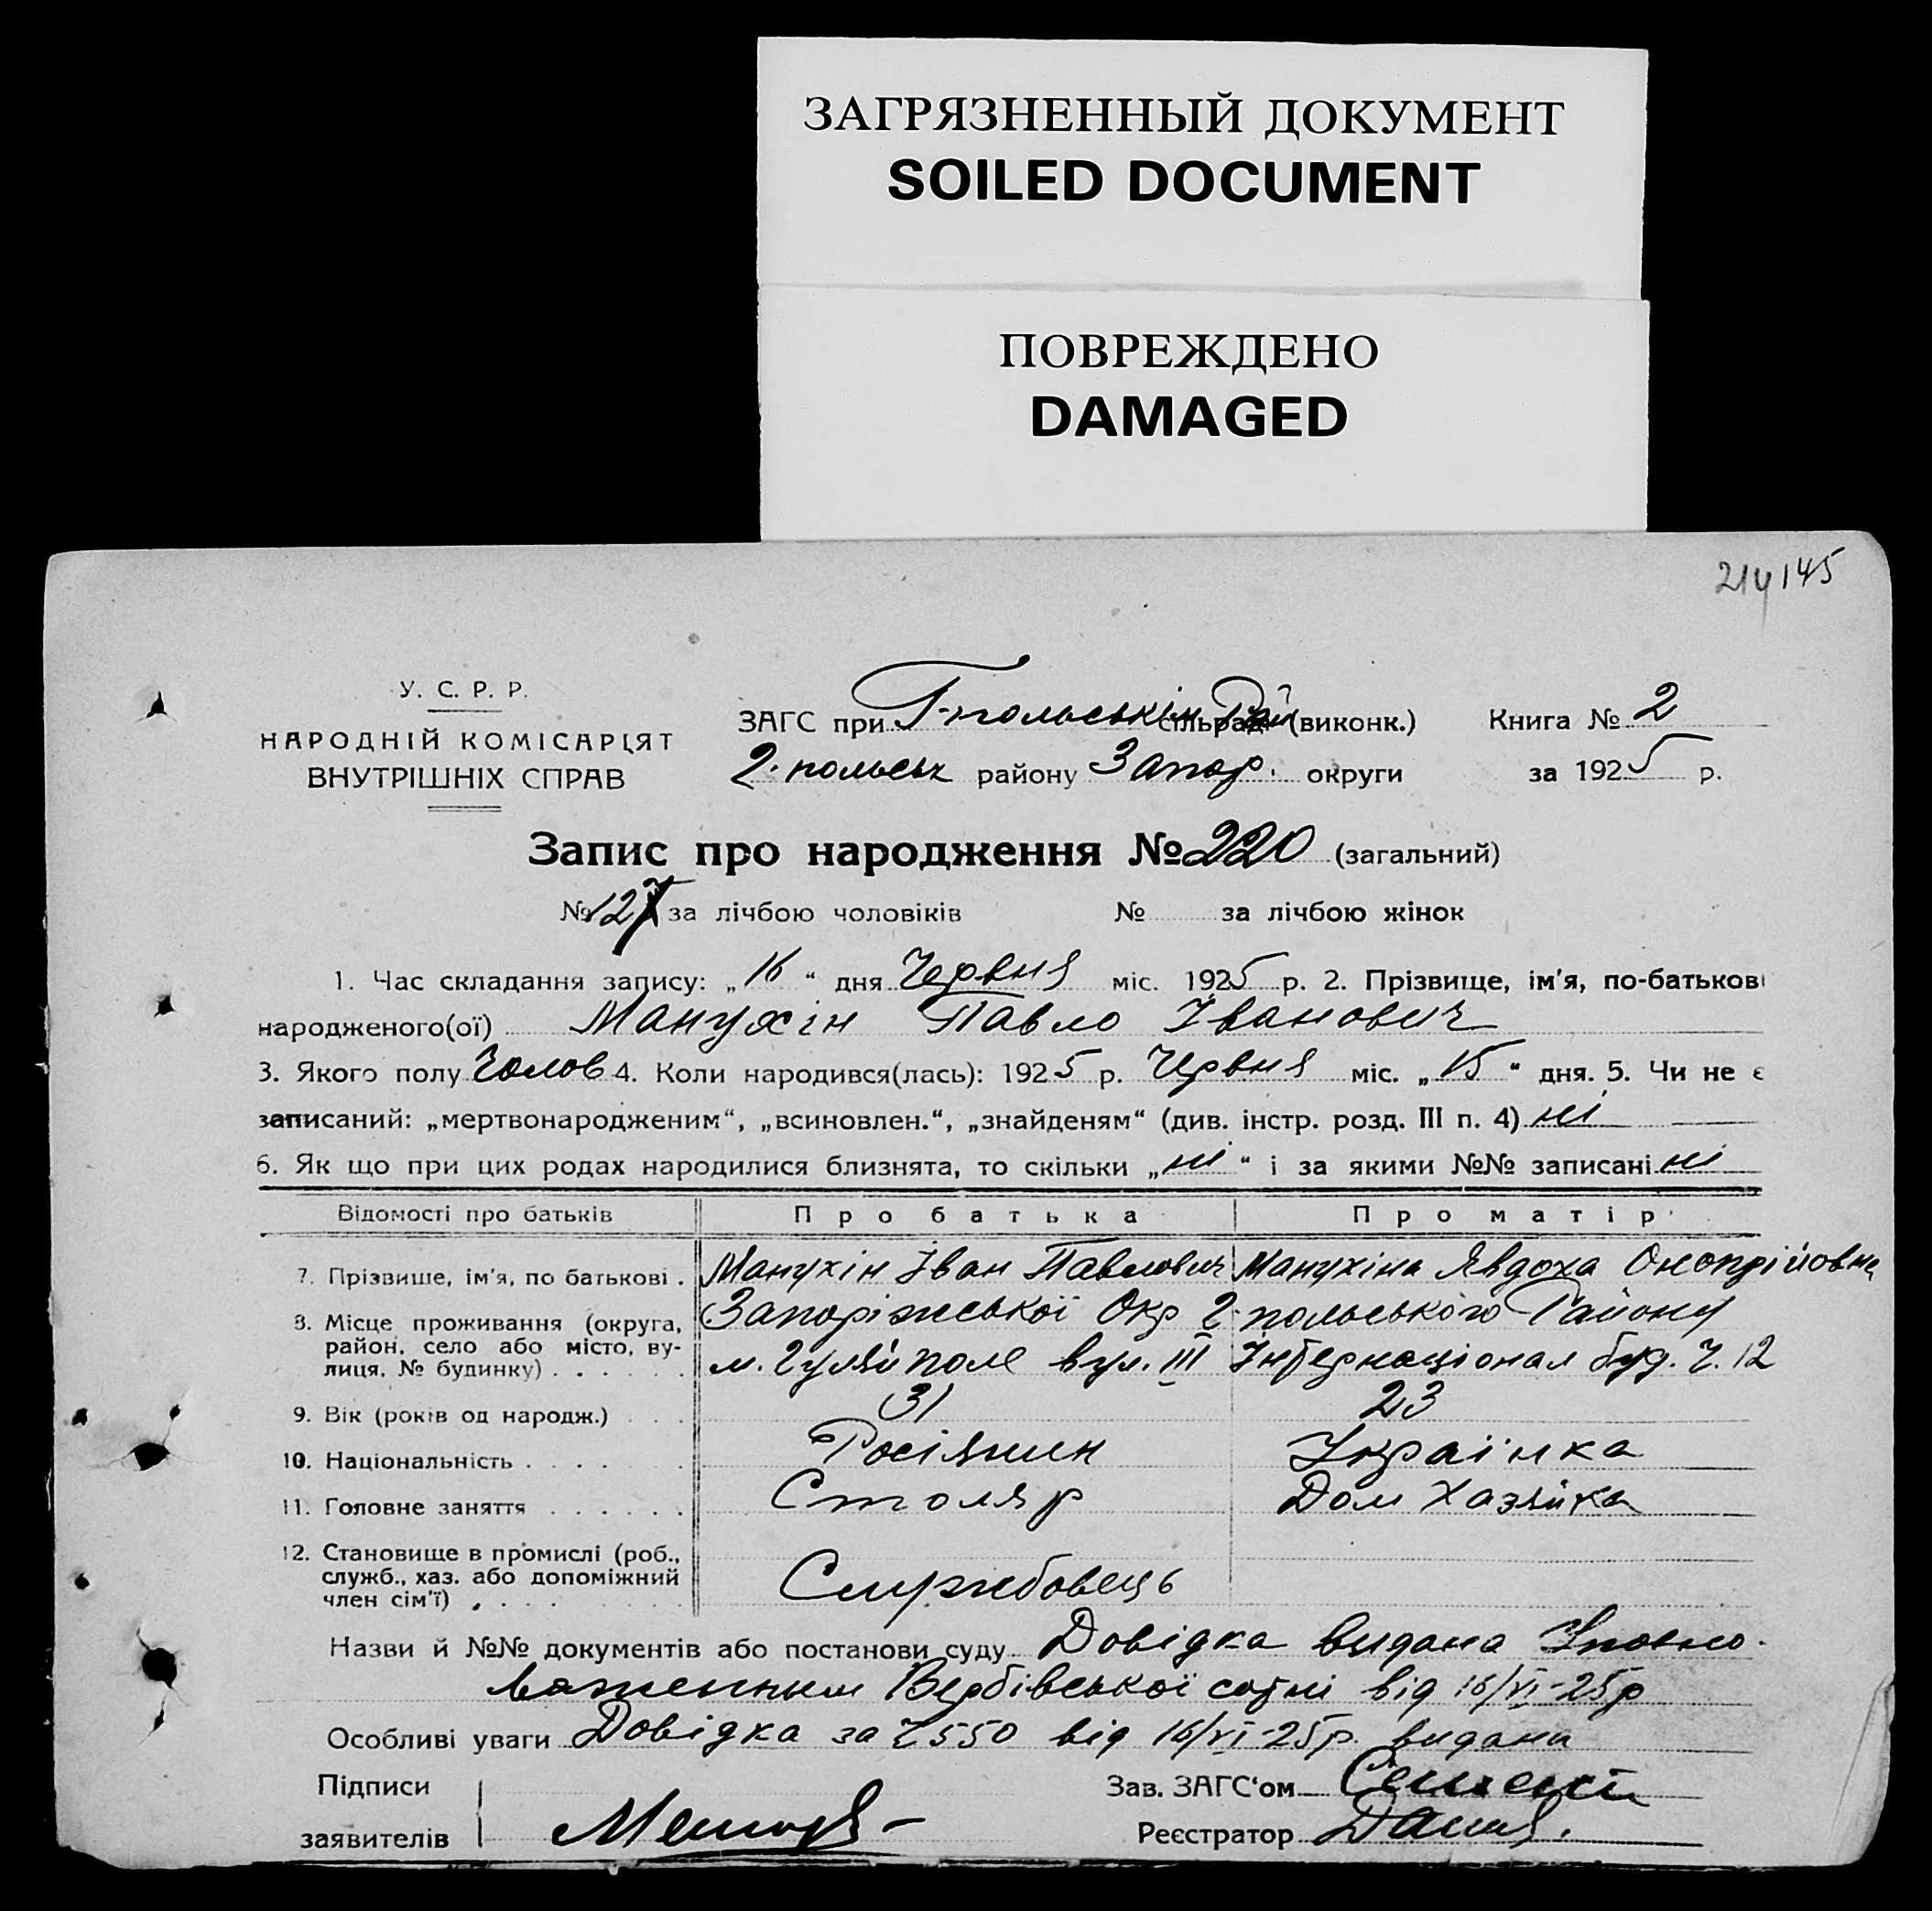 ЗАГРЯЗНЕННЫЙ ДОКУМЕНТ
SOILED DOCUMENT
ПОВРЕЖДЕНО
DAMAGED
214 145
У. С. Р. Р.
НАРОДНІЙ КОМІСАРІЯТ
ВНУТРІШНІХ СПРАВ
ЗАГС при Г-польськім сільраді (виконк.) Книга № 2
Г. польськ району Запор. округи за 1925 р.
Запис про народження № 220 (загальний)
№ 127 за лічбою чоловіків № за лічбою жінок
1. Час складання запису: „16“ дня Червня міс. 1925 р. 2. Прізвище, ім'я, по-батькові
народженого(ої) Манухін Павло Іванович
3. Якого полу Чолов 4. Коли народився(лась): 1925 р. Червня міс. „15“ дня. 5. Чи не є
записаний: „мертвонародженим“, „всиновлен.“, „знайденям“ (див. інстр. розд. III п. 4) ні
6. Як що при цих родах народилися близнята, то скільки „ні“ і за якими №№ записані ні
Відомості про батьків Про батька Про матір
7. Прізвище, ім'я, по батькові . Манухін Іван Павлович Манухіна Явдоха Онопрійовна
8. Місце проживання (округа, район, село або місто, вулиця, № будинку) . . . . . . Запоріжської Окр Г-польського Району
м. Гуляйполе вул. III Інтернаціонал буд. ч. 12
9. Вік (років од народж.) . . . 31 23
10. Національність . . . . . Росіянин Українка
11. Головне заняття . . . . . . Столяр Дом Хазяйка
12. Становище в промислі (роб., служб., хаз. або допоміжний член сім'ї) . . . . Службовець
Назви й №№ документів або постанови суду Довідка видана Уповно-
важенним Вербівської сотні від 16/VI-25р
Особливі уваги Довідка за ч 550 від 16/VI-25р. видана
Підписи
заявителів
Зав. ЗАГС'ом
Реєстратор